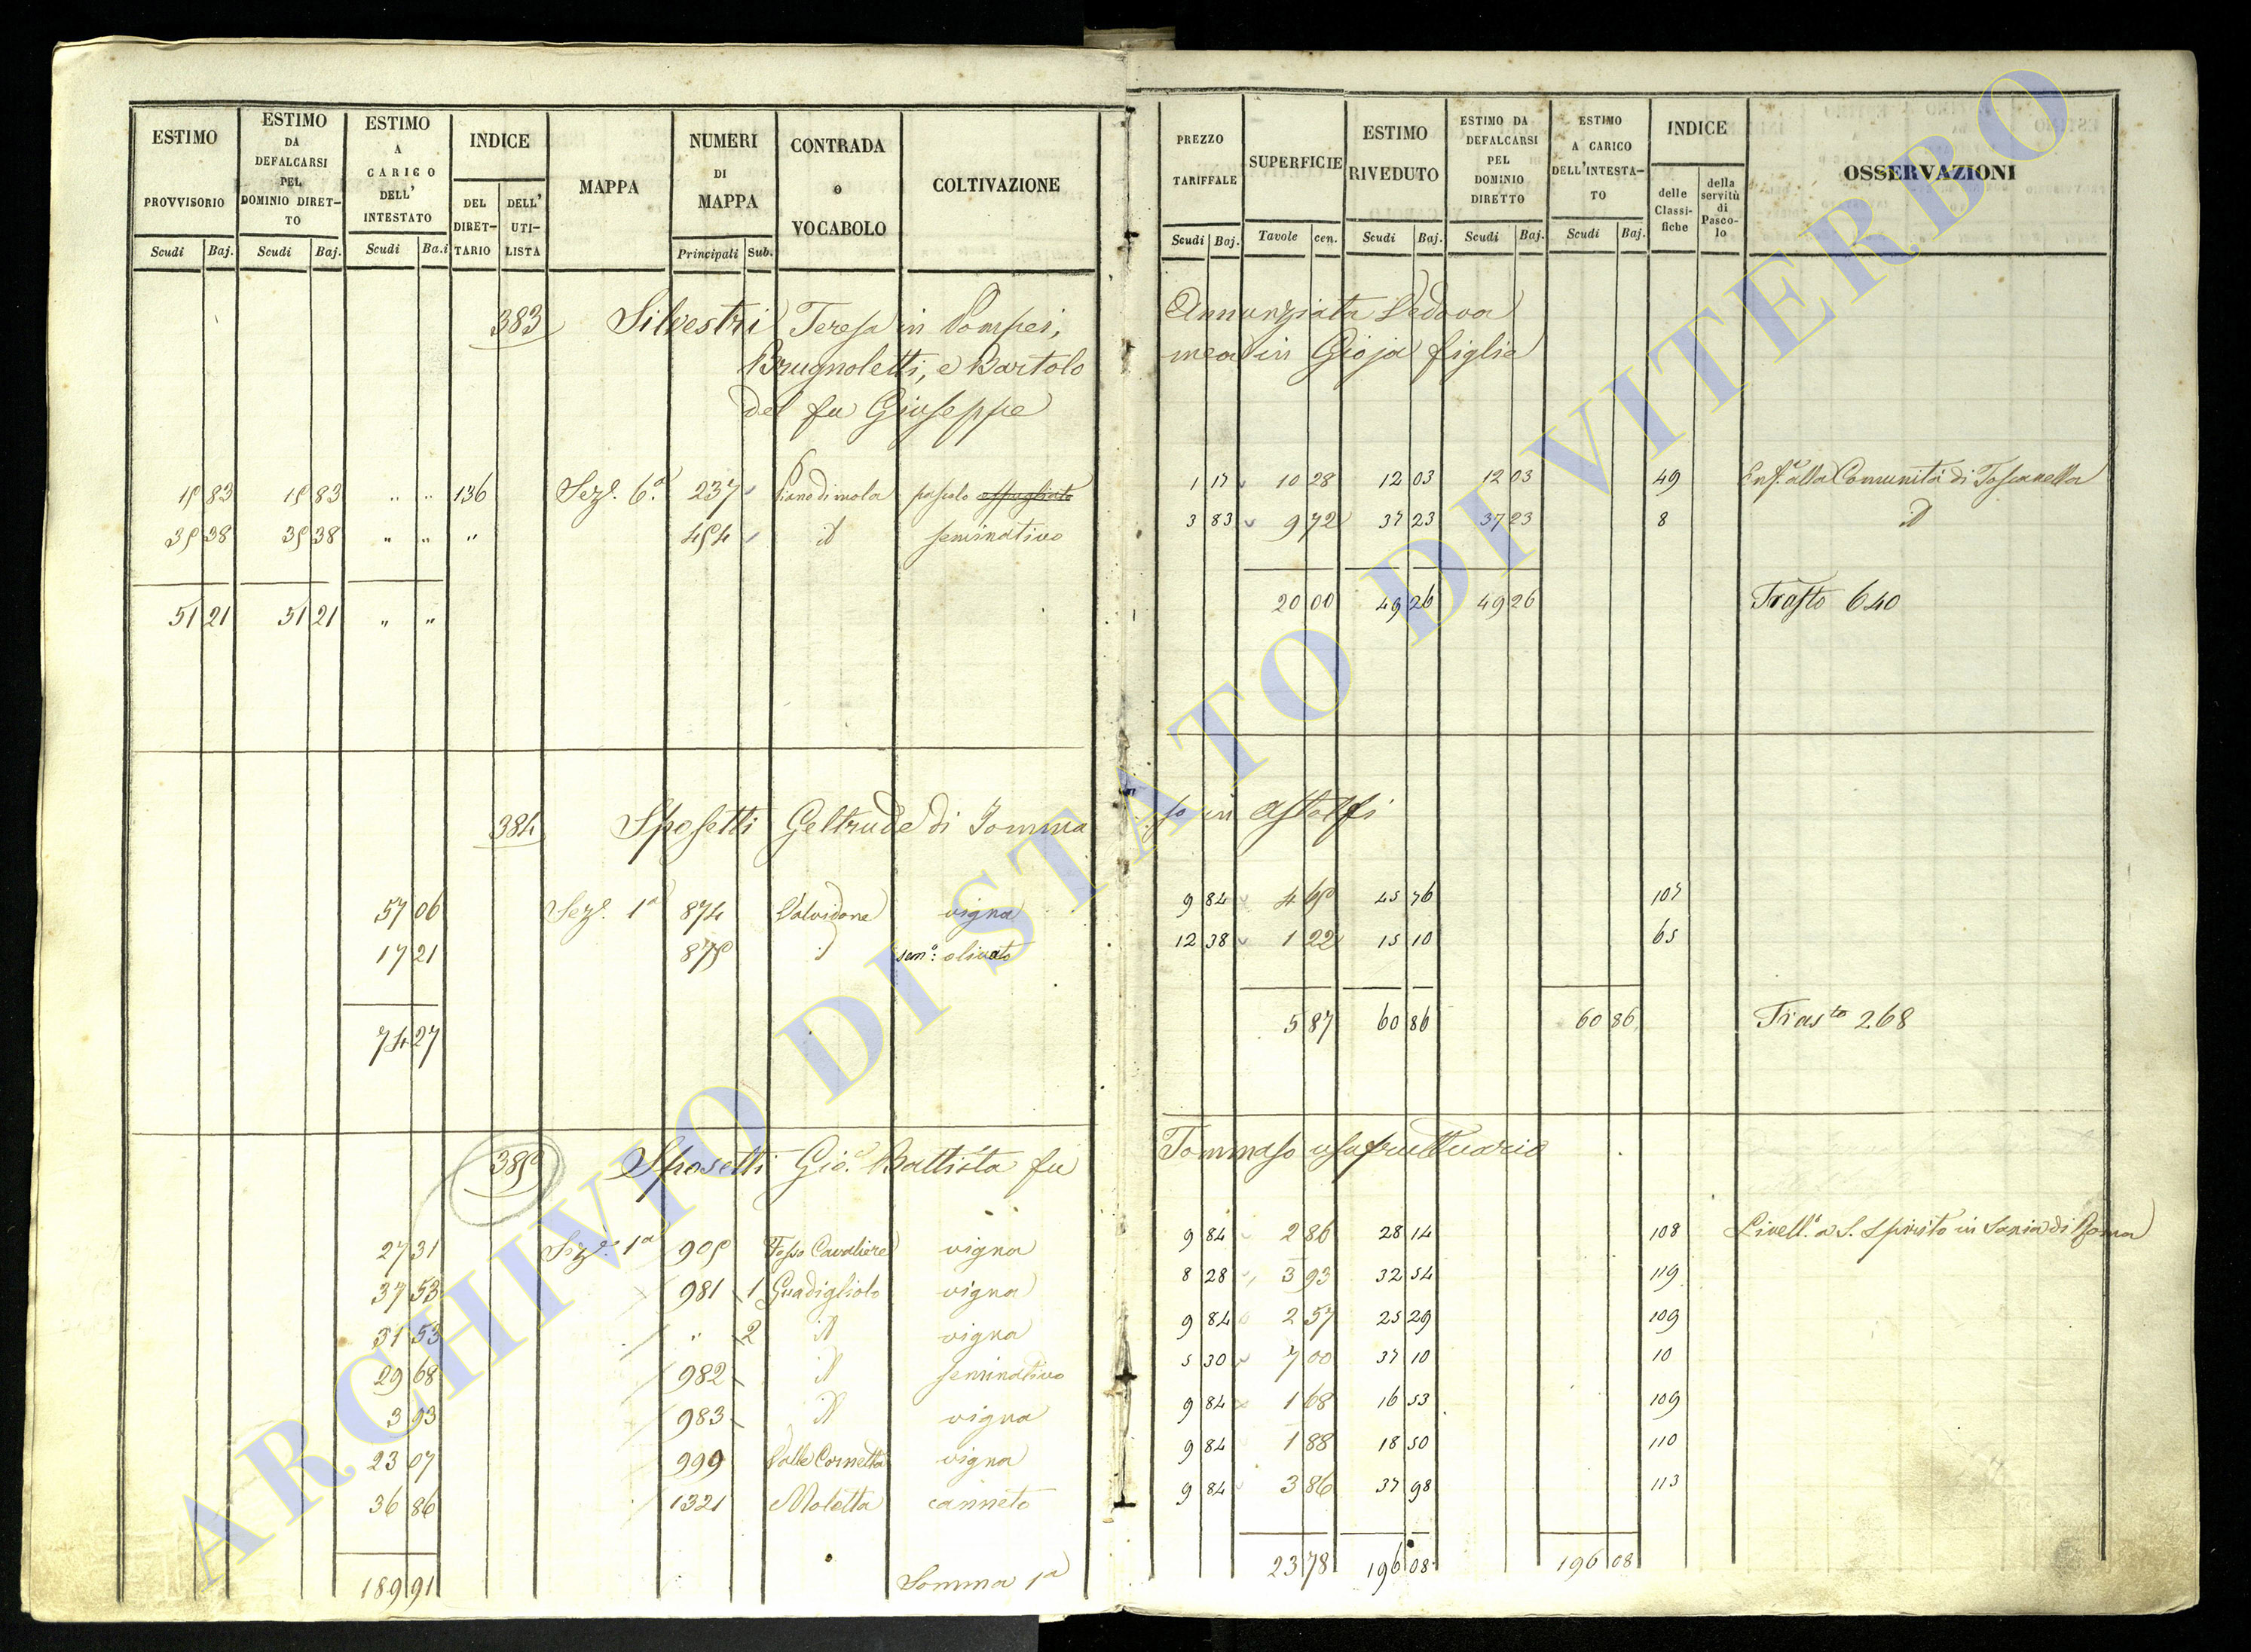 ESTIMO PROVVISORIO Scudi Baj.
ESTIMO DA DEFALCARSI PEL DOMINIO DIRETTO Scudi Baj.
ESTIMO A CARICO DELL' INTESTATO Scudi Ba.i
INDICE DEL DIRETTARIO DELL' UTILISTA
MAPPA
NUMERI DI MAPPA Principali Sub.
CONTRADA o VOCABOLO
COLTIVAZIONE
PREZZO TARIFFALE Scudi Baj.
SUPERFICIE Tavole cen.
ESTIMO RIVEDUTO Scudi Baj.
ESTIMO DA DEFALCARSI PEL DOMINIO DIRETTO Scudi Baj.
ESTIMO A CARICO DELL'INTESTATO Scudi Baj.
INDICE delle Classifiche della servitù di Pascolo
OSSERVAZIONI
383 Silvestri Teresa in Pompei, Annunziata Vedova
Brugnoletti, e Bartolomea in Gioja figlie
del fu Giuseppe
15 83 15 83 " " 136 Sez.e 6.a 237 Piano di mola pascolo 1 17 10 28 12 03 12 03 49 Enf.a alla Comunità di Toscanella
35 38 35 38 " " " 454 id seminativo 3 83 9 72 37 23 37 23 8 id
51 21 51 21 " " 20 00 49 26 49 26 Trasto 640
384 Sposetti Geltrude di Tommaso in Astolfi
57 06 Sez.e 1a 874 Valvidone vigna 9 84 4 65 45 76 107
17 21 875 id sem.o olivato 12 38 1 22 15 10 65
74 27 5 87 60 86 60 86 Trasto 268
385 Sposetti Gio. Battista fu Tommaso usufruttuario
27 31 Sez.e 1a 905 Fosso Cavaliere vigna 9 84 2 86 28 14 108 Livell.o a S. Spirito in Saxia di Roma
37 53 981 1 Guadigliolo vigna 8 28 3 93 32 54 119
31 53 " 2 id vigna 9 84 2 57 25 29 109
29 68 982 id seminativo 5 30 7 00 37 10 10
3 93 983 id vigna 9 84 1 68 16 53 109
23 07 999 Valle Cornetta vigna 9 84 1 88 18 50 110
36 86 1321 Moletta canneto 9 84 3 86 37 98 113
189 91 Somma 1a 23 78 196 08 196 08
ARCHIVIO DI STATO DI VITERBO